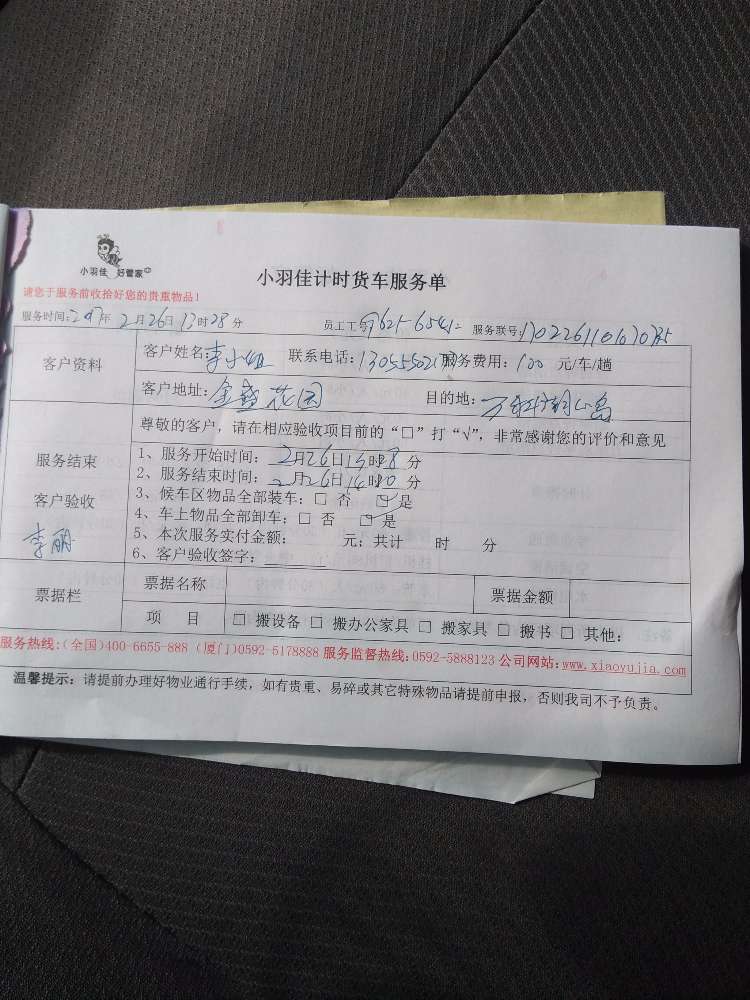 小羽佳 好管家
小羽佳计时货车服务单
请您于服务前收拾好您的贵重物品！
服务时间：2017年2月26日13时28分 员工工号 9621-6541 服务联号：
客户资料
客户姓名：李小姐 联系电话： 服务费用：100 元/车/趟
客户地址：金盛花园 目的地：万科湖心岛
尊敬的客户，请在相应验收项目前的“□”打“√”，非常感谢您的评价和意见
服务结束
客户验收
李丽
1、服务开始时间：2月26日13时28分
2、服务结束时间：2月26日14时10分
3、候车区物品全部装车：□ 否 ☑是
4、车上物品全部卸车：□ 否 ☑是
5、本次服务实付金额： 元；共计 时 分
6、客户验收签字：
票据栏
票据名称 票据金额
项 目 □ 搬设备 □ 搬办公家具 □ 搬家具 □ 搬书 □ 其他：
服务热线：(全国)400-6655-888 (厦门)0592-5178888 服务监督热线：0592-5888123 公司网站：www.xiaoyujia.com
温馨提示：请提前办理好物业通行手续，如有贵重、易碎或其它特殊物品请提前申报，否则我司不予负责。